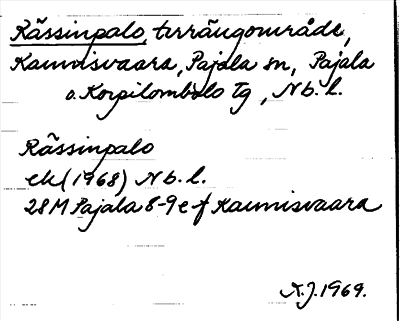 Kässinpalo, terrängområde,
Kaunisvaara, Pajala sn, Pajala
o. Korpilombolo tg, Nb. l.
Kässinpalo
ek (1968) Nb. l.
28M Pajala 8-9 e-f Kaunisvaara
A.J. 1969.